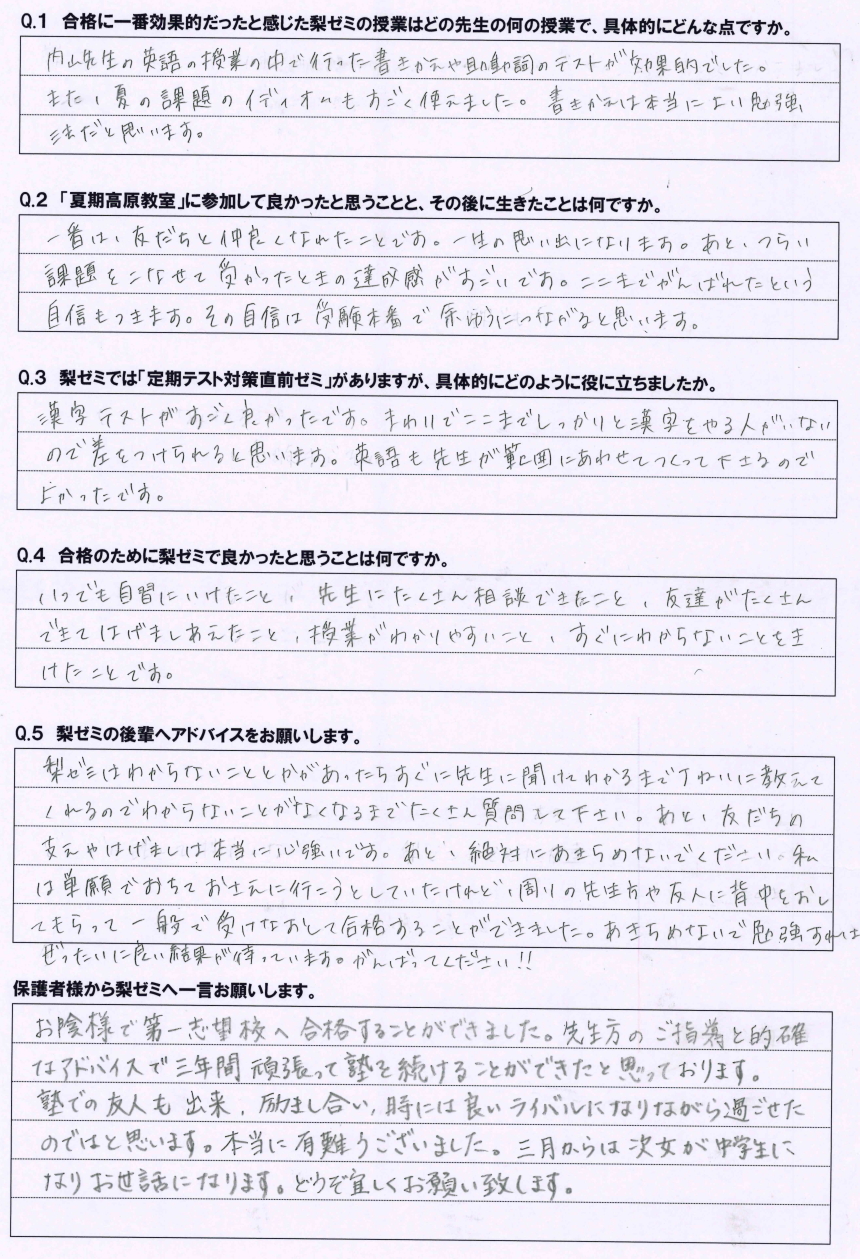 Q.1 合格に一番効果的だったと感じた梨ゼミの授業はどの先生の何の授業で、具体的にどんな点ですか。
内山先生の英語の授業の中で行った書きかえや助動詞のテストが効果的でした。
また、夏の課題のイディオムもすごく使えました。書きかえは本当によい勉強
法だと思います。
Q.2 「夏期高原教室」に参加して良かったと思うことと、その後に生きたことは何ですか。
一番は、友だちと仲良くなれたことです。一生の思い出になります。あと、つらい
課題をこなせて受かったときの達成感がすごいです。ここまでがんばれたという
自信もつきます。その自信は受験本番で余ゆうにつながると思います。
Q.3 梨ゼミでは「定期テスト対策直前ゼミ」がありますが、具体的にどのように役に立ちましたか。
漢字テストがすごく良かったです。まわりでここまでしっかりと漢字をやる人がいない
ので差をつけられると思います。英語も先生が範囲にあわせてつくって下さるので
よかったです。
Q.4 合格のために梨ゼミで良かったと思うことは何ですか。
いつでも自習にいけたこと、先生にたくさん相談できたこと、友達がたくさん
できてはげましあえたこと、授業がわかりやすいこと、すぐにわからないことをき
けたことです。
Q.5 梨ゼミの後輩へアドバイスをお願いします。
梨ゼミはわからないこととかがあったらすぐに先生に聞けてわかるまで丁ねいに教えて
くれるのでわからないことがなくなるまでたくさん質問して下さい。あと、友だちの
支えやはげましは本当に心強いです。あと、絶対にあきらめないでください。私
は単願でおちておさえに行こうとしていたけれど、周りの先生方や友人に背中をおし
てもらって一般で受けなおして合格することができました。あきらめないで勉強すれば
ぜったいに良い結果が待っています。がんばってください!!
保護者様から梨ゼミへ一言お願いします。
お陰様で第一志望校へ合格することができました。先生方のご指導と的確
なアドバイスで三年間頑張って塾を続けることができたと思っております。
塾での友人も出来、励まし合い、時には良いライバルになりながら過ごせた
のではと思います。本当に有難うございました。三月からは次女が中学生に
なりお世話になります。どうぞ宜しくお願い致します。